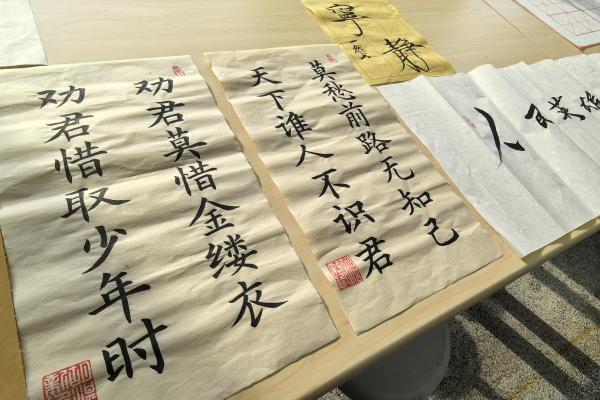 劝君莫惜金缕衣
劝君惜取少年时
莫愁前路无知己
天下谁人不识君
寧
静
人民英雄